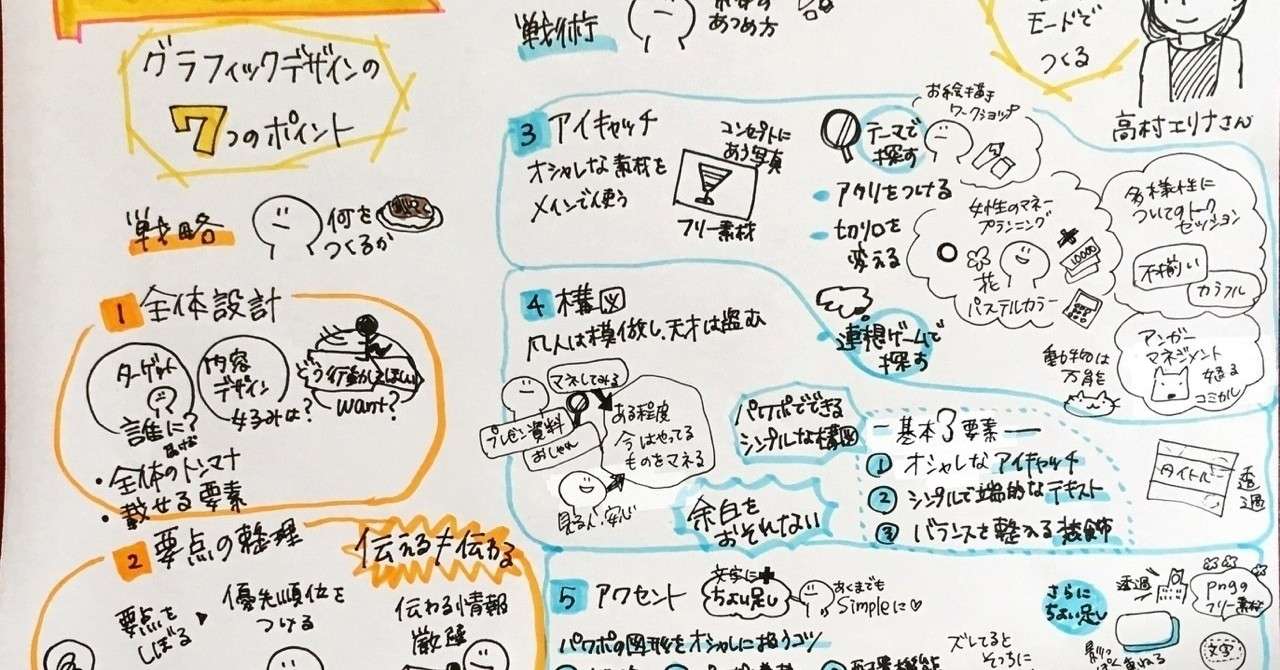 グラフィックデザインの
7つのポイント
戦略
何を
つくるか
1 全体設計
ターゲット
誰に?
内容
デザイン
好みは?
どう行動してほしい
want?
・全体のトンマナ
・載せる要素
2 要点の整理
伝える≠伝わる
要点を
しぼる
優先順位を
つける
伝わる情報
厳選
戦術
あつめ方
モードで
つくる
高村エリナさん
3 アイキャッチ
オシャレな素材を
メインで使う
コンセプトに
あう写真
フリー素材
テーマで
探す
・アタリをつける
・切り口を
変える
連想ゲームで
探す
お絵描き
ワークショップ
女性のマネー
プランニング
花
パステルカラー
10000
多様性に
ついてのトーク
セッション
不揃い
カラフル
アンガー
マネジメント
怒る
コミカル
動物は
万能
4 構図
凡人は模倣し、天才は盗む
マネしてみる
プレゼン資料
おしゃれ
ある程度
今はやってる
ものをマネる
見る人・安心
パワポでできる
シンプルな構図
余白を
おそれない
基本3要素
① オシャレなアイキャッチ
② シンプルで端的なテキスト
③ バランスを整える装飾
タイトル
透過
5 アクセント
文字に+
ちょい足し
あくまでも
Simpleに♡
パワポの図形をオシャレに扱うコツ
ズレてると
そっちに
さらに
ちょい足し
透過
pngの
フリー素材
文字